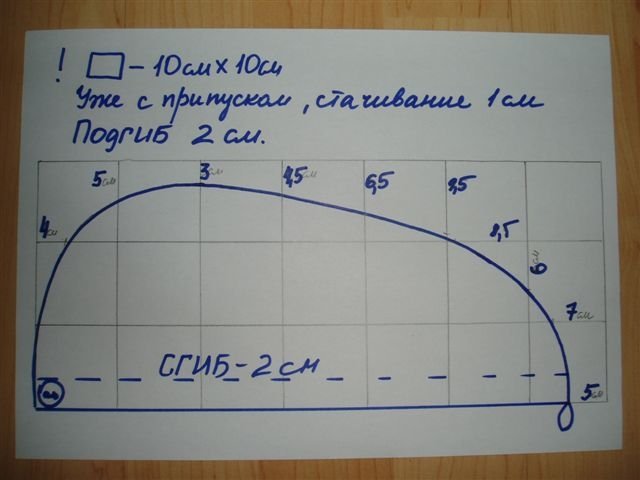 ! □ - 10см х 10см
Уже с припуском, стачивание 1см
Подгиб 2см.
5см 3см 4,5см 6,5 9,5
4см 8,5
6см
7см
СГИБ - 2см
5см